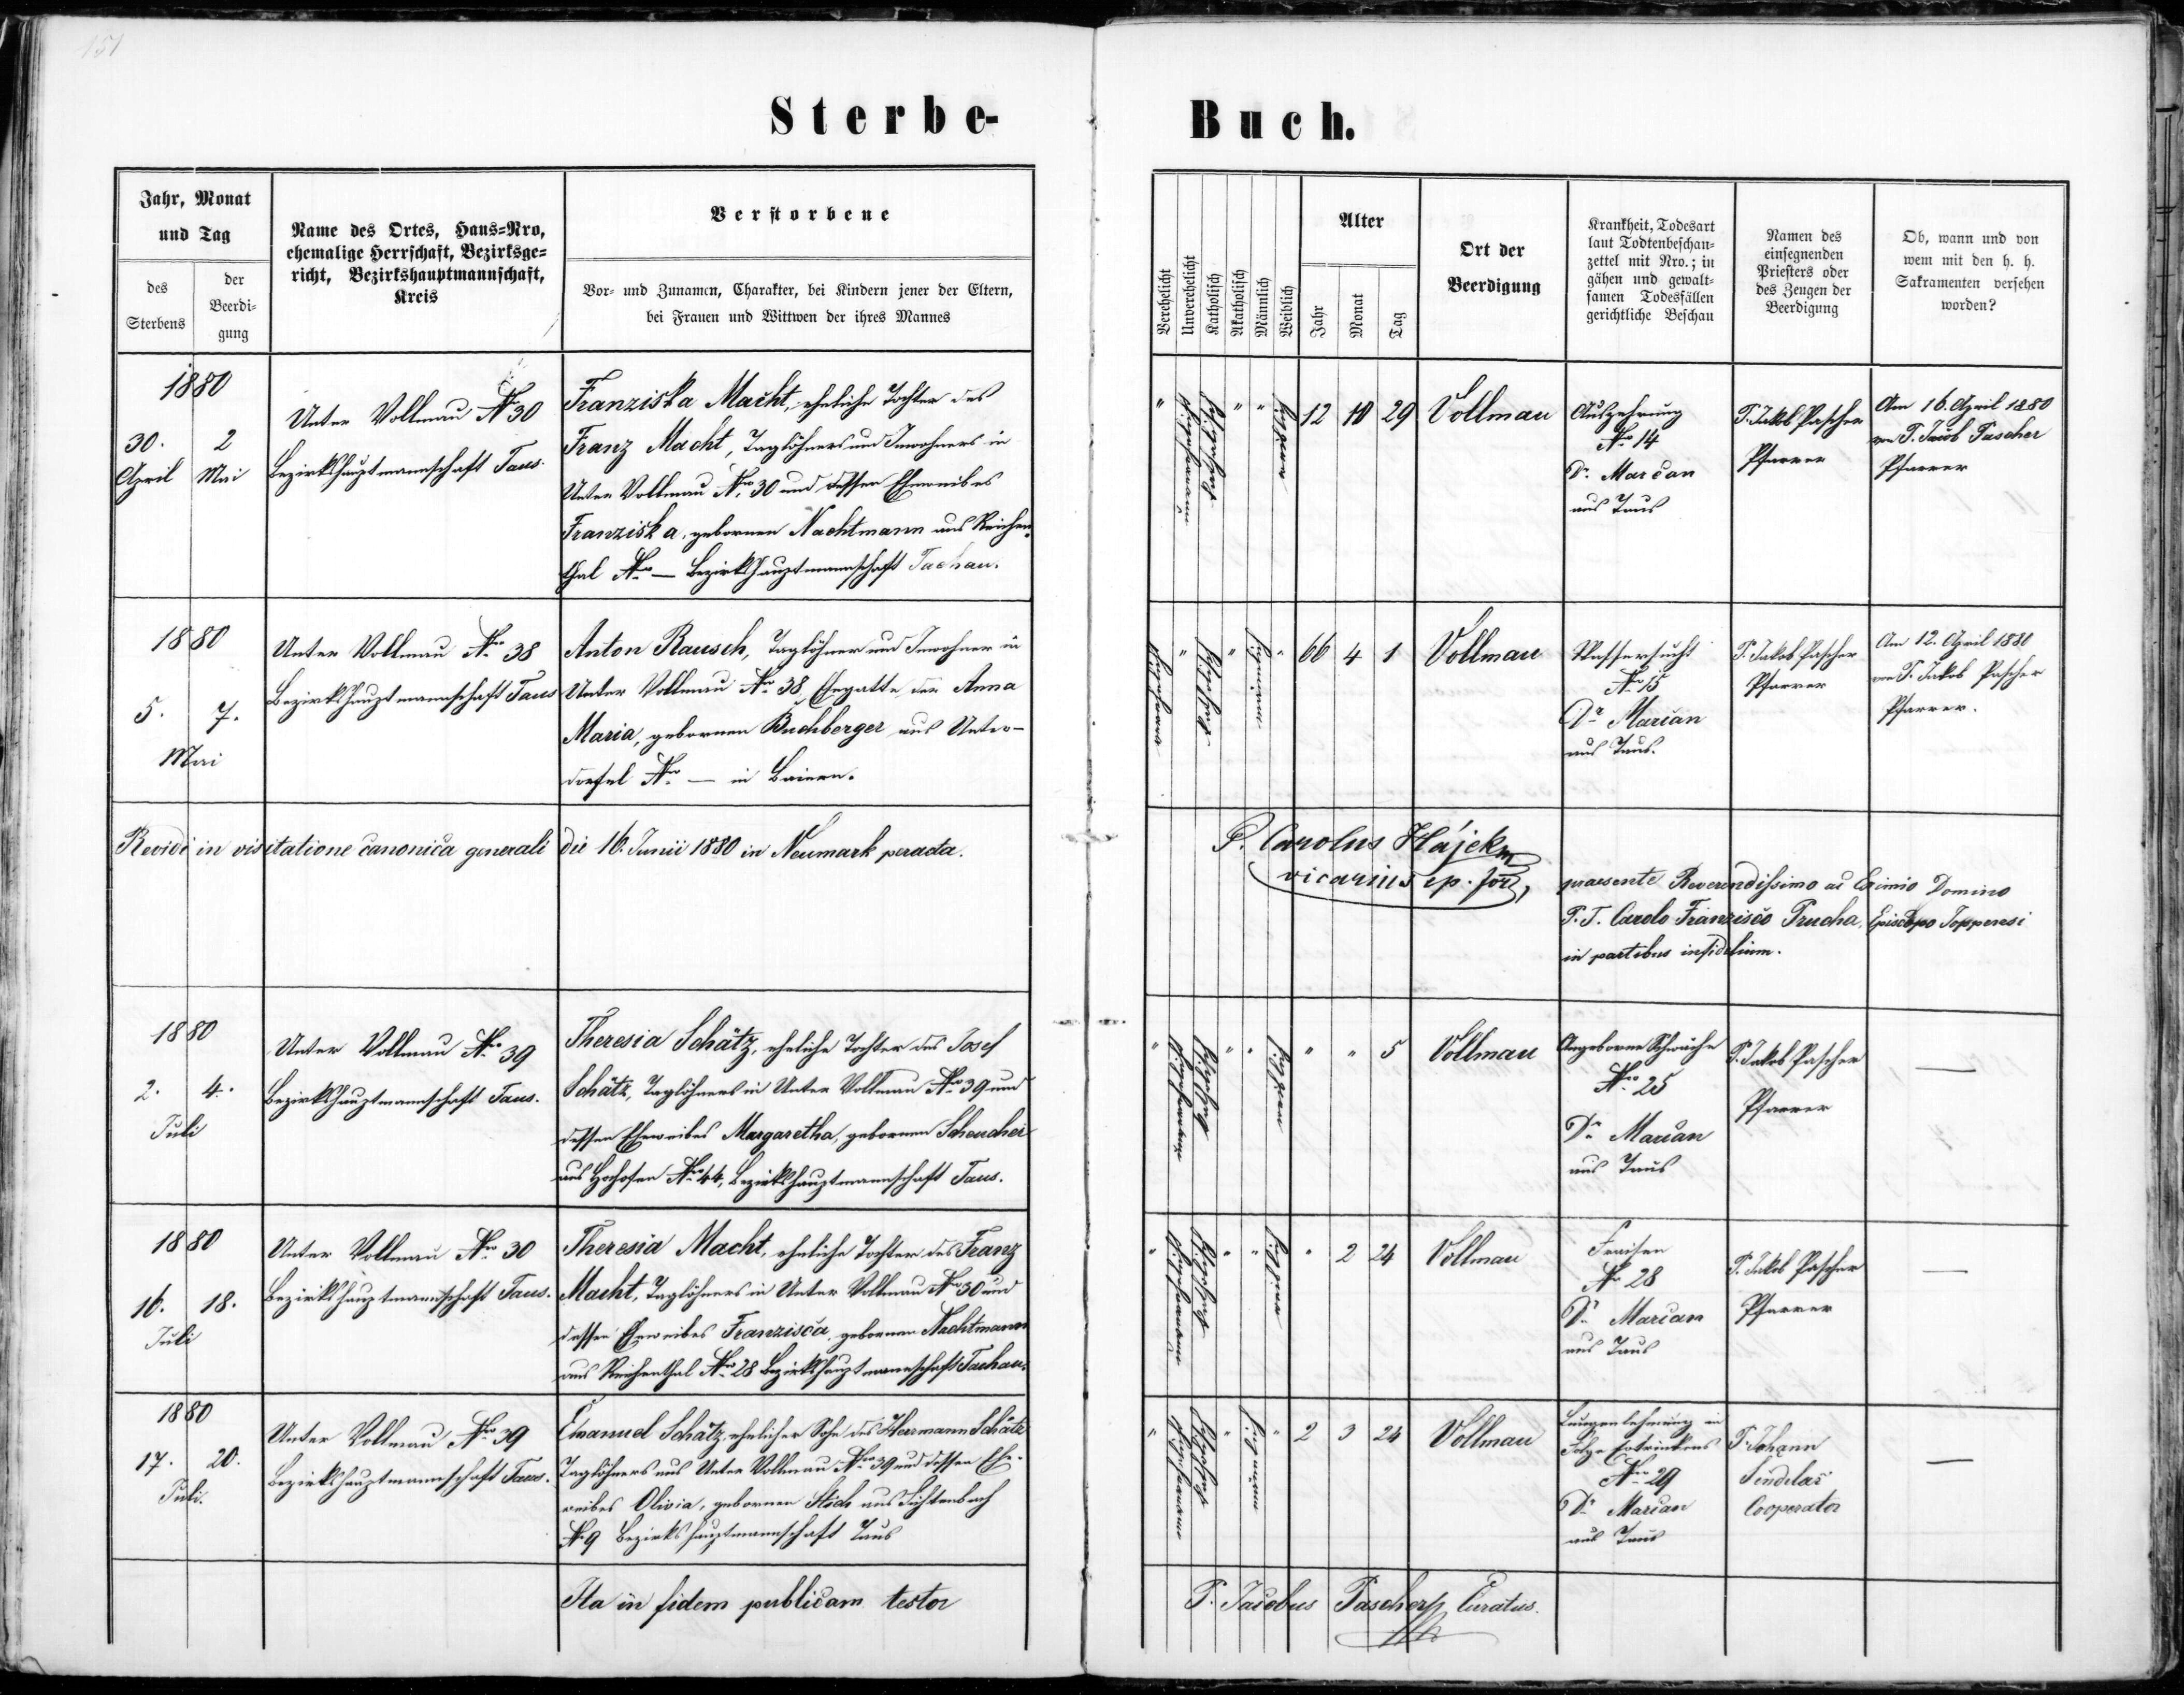 151
Sterbe-
Buch.
Jahr, Monat
und Tag
des
Sterbens
der
Beerdi-
gung
Name des Ortes, Haus-Nro,
ehemalige Herrschaft, Bezirksge-
richt, Bezirkshauptmannschaft,
Kreis
Verstorbene
Vor- und Zunamen, Charakter, bei Kindern jener der Eltern,
bei Frauen und Wittwen der ihres Mannes
Verehelicht
Unverehelicht
Katholisch
Akatholisch
Männlich
Weiblich
Alter
Jahr
Monat
Tag
Ort der
Beerdigung
Krankheit, Todesart
laut Todtenbeschau-
zettel mit Nro.; in
gähen und gewalt-
samen Todesfällen
gerichtliche Beschau
Namen des
einsegnenden
Priesters oder
des Zeugen der
Beerdigung
Ob, wann und von
wem mit den h. h.
Sakramenten versehen
worden?
1880
30. 2
April Mai
Unter Vollmau Nro 30
Bezirkshauptmannschaft Taus.
Franziska Macht, eheliche Tochter des
Franz Macht, Taglöhners und Inwohners in
Unter Vollmau Nro 30 und dessen Eheweibes
Franziska, gebornen Nachtmann aus Reichen-
thal Nro — Bezirkshauptmannschaft Tachau.
12 10 29
Vollmau
Auszehrung
Nro 14
Dr. Marčan
aus Taus
P. Jakob Pascher
Pfarrer
Am 16. April 1880
von P. Jacob Pascher
Pfarrer
1880
5. 7.
Mai
Unter Vollmau Nro 38
Bezirkshauptmannschaft Taus
Anton Rausch, Taglöhner und Inwohner in
Unter Vollmau Nro 38, Ehegatte der Anna
Maria, gebornen Buchberger aus Unter-
dorfel Nro — in Baiern.
66 4 1
Vollmau
Wassersucht
Nro 15
Dr Marčan
aus Taus.
P. Jakob Pascher
Pfarrer
Am 12. April 1880
von P. Jakob Pascher
Pfarrer.
Revidi in visitatione canonica generali die 16. Junii 1880 in Neumark peracta.
P. Carolus Hájek
vicarius ep. for.
praesente Reverendissimo ac Eximio Domino
P. T. Carolo Francisco Prucha, Episcopo Joppensi
in partibus infidelium.
1880
2. 4.
Juli
Unter Vollmau Nro 39
Bezirkshauptmannschaft Taus.
Theresia Schätz, eheliche Tochter des Josef
Schätz, Taglöhners in Unter Vollmau Nro 39 und
dessen Eheweibes Margaretha, gebornen
aus Hochofen Nro 44, Bezirkshauptmannschaft Taus.
" " 5
Vollmau
Angeborne Schwäche
Nro 25
Dr Marčan
aus Taus
P. Jakob Pascher
Pfarrer
—
1880
16. 18.
Juli
Unter Vollmau Nro 30
Bezirkshauptmannschaft Taus.
Theresia Macht, eheliche Tochter des Franz
Macht, Taglöhners in Unter Vollmau Nro 30 und
dessen Eheweibes Franzisca, gebornen Nachtmann
aus Reichenthal Nro 28 Bezirkshauptmannschaft Tachau.
" 2 24
Vollmau
Fraisen
Nr 28
Dr Marčan
aus Taus
P. Jakob Pascher
Pfarrer
—
1880
17. 20.
Juli.
Unter Vollmau Nro 39
Bezirkshauptmannschaft Taus.
Emanuel Schätz, ehelicher Sohn des Hermann Schätz
Taglöhners aus Unter Vollmau Nro 39 und dessen Ehe-
weibes Olivia, gebornen Stich aus
No 9 Bezirkshauptmannschaft Taus
2 3 24
Vollmau
Lungenlähmung in
Folge Ertrinkens
Nro 29
Dr Marčan
aus Taus
P. Johann
Šindelař
Cooperator
—
Ita in fidem publicam testor
P. Jacobus Pascher Curatus.